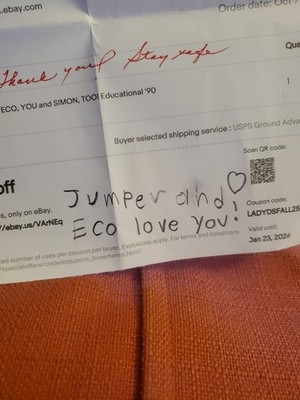 s.ebay.com
Order date: Oct
Thank you! Stay safe
Qua
ECO, YOU and SIMON, TOO! Educational '90
1
Buyer selected shipping service : USPS Ground Adva
Scan QR code:
off
Jumper and
Eco love you!
s, only on eBay.
//ebay.us/VArNEq
Coupon code:
LADYDSFALL26
Valid until:
Jan 23, 2026
ted number of uses per coupon per buyer. Exclusions apply. For terms and conditions